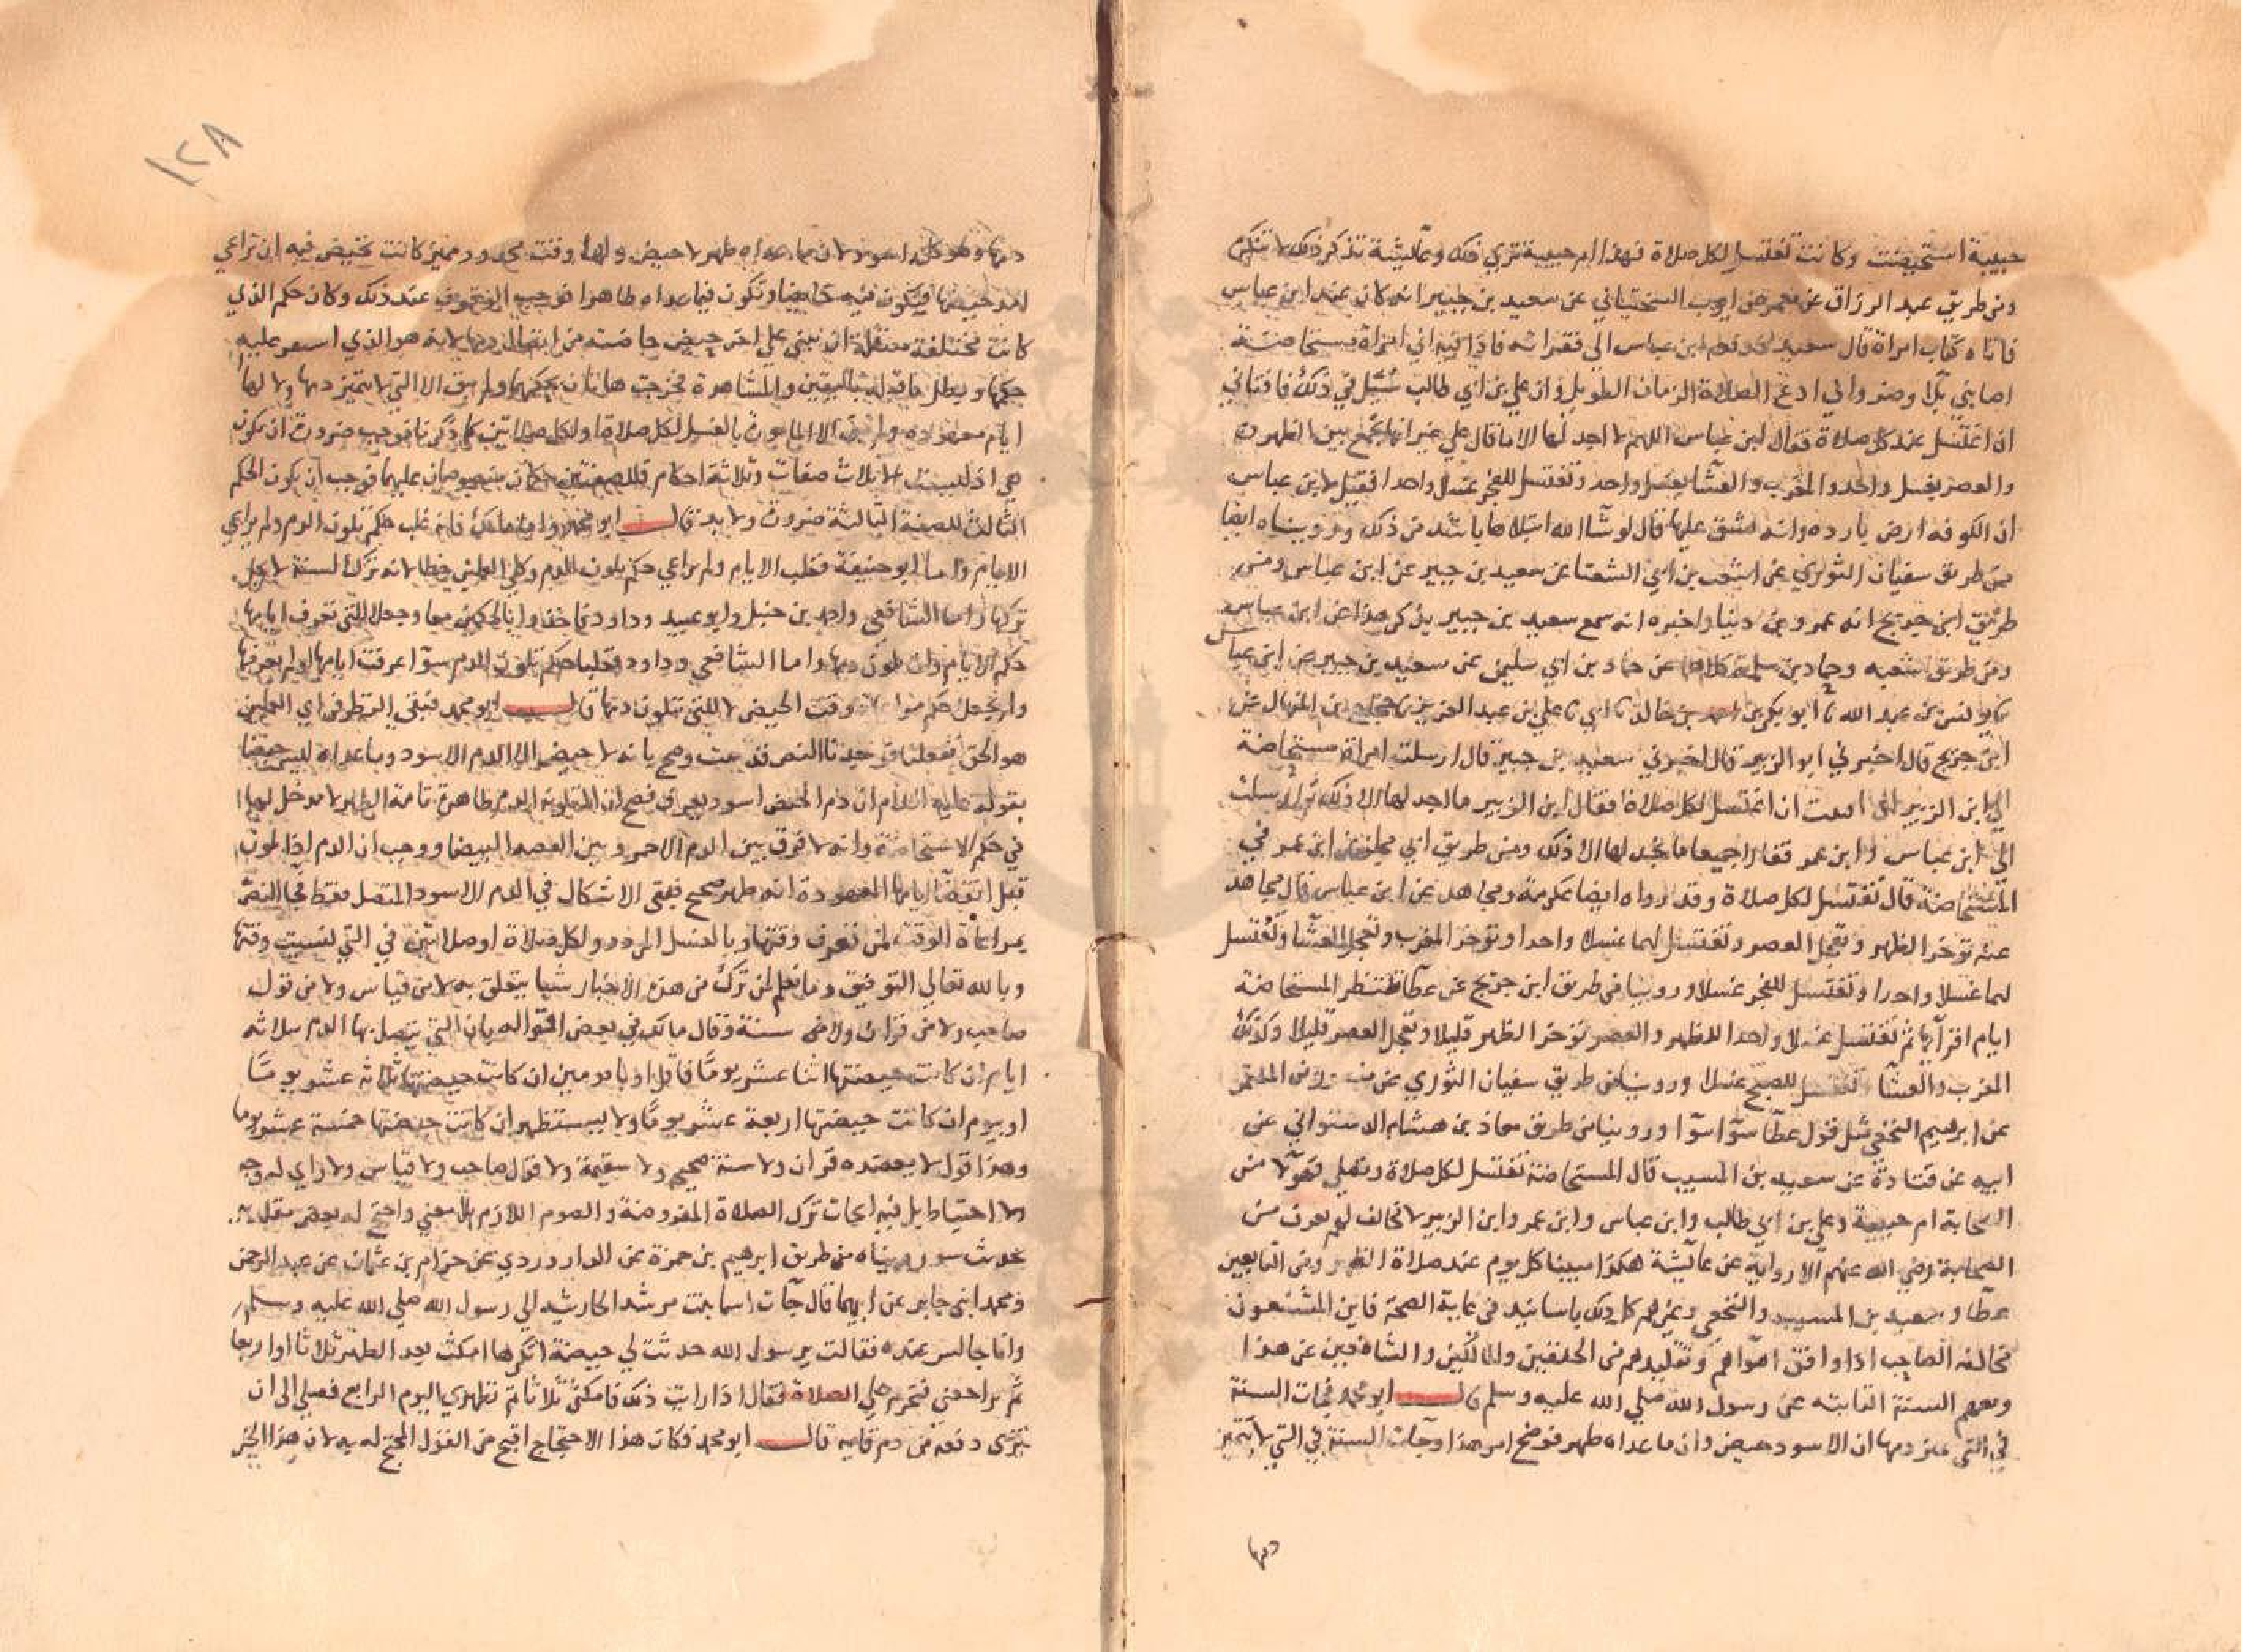 حبيبة استحيضت وكانت تغتسل لكل صلاة فهذا ام حبيبة تري ذلك وعآئشة تذكر ذلك لا تنكره
ومن طريق عبد الرزاق عن معمر عن ايوب السختياني عن سعيد بن جبير انه كان عند ابن عباس
فاتاه كتاب امراة قال سعيد فدفعه ابن عباس الي فقراته فاذا فيه اني امراة مستحاضة
اصابني بلا وضر واني ادع الصلاة الزمان الطويل وان علي بن ابي طالب سُئل في ذلك فافتاني
ان اغتسل عند كل صلاة فقال ابن عباس اللهم لا اجد لها الا ما قال علي غير انها تجمع بين الظهر
والعصر بغسل واحد والمغرب والعشا بغسل واحد وتغتسل للفجر غسلا واحدا فقيل لابن عباس
ان الكوفه ارض بارده وانه يشق عليها قال لو شآ الله ابتلاها باشد من ذلك وروينا ه ايضا
من طريق سفيان الثوري عن اشعب بن ابي الشعثا عن سعيد بن جبير عن ابن عباس ومن
طريق ابن جريج انه عمرو بن دينار اخبره انه سمع سعيد بن جبير يذكر هذا عن ابن عباس
ومن طريق شعبه وحماد بن سلمة كلاهما عن حماد بن ابي سليمن عن سعيد بن جبير عن ابن عباس
يونس بن عبد الله ثا ابو بكر بن احمد بن خالد ثا ابي ثا علي بن عبد العزيز ثا حجاج بن المنهال عن
ابن جريج قال اخبرني ابو الزبير قال اخبرني سعيد بن جبير قال ارسلت امراة مستحاضة
الي ابن الزبير اني افتيت ان اغتسل لكل صلاة فقال ابن الزبير ما اجد لها الا ذلك وارسلت
الي ابن عباس وابن عمر فقالا جميعا ما نجد لها الا ذلك ومن طريق ابي مجلز عن ابن عمر في
المستحاضة قال تغتسل لكل صلاة وقد رواه ايضا عكرمة ومجاهد عن ابن عباس قال مجاهد
عنه توخر الظهر وتعجل العصر وتغتسل لهما غسلا واحدا وتوخر المغرب وتعجل العشا وتغتسل
لهما غسلا واحدا وتغتسل للفجر غسلا وروينا من طريق ابن جريج عن عطآ تنتظر المستحاضة
ايام اقرآيها ثم تغتسل غسلا واحدا للظهر والعصر توخر الظهر قليلا وتعجل العصر قليلا وكذلك
المغرب والعشآ وتغتسل للصبح غسلا وروينا من طريق سفيان الثوري عن منصور بن المعتمر
عن ابرهيم النخعي مثل قول عطآ سوآ سوآ وروينا من طريق معاذ بن هشام الدستواني عن
ابيه عن قتادة عن سعيد بن المسيب قال المستحاضة تغتسل لكل صلاة وتصلي فهولآ من
الصحابة ام حبيبة وعلي بن ابي طالب وابن عباس وابن عمر وابن الزبير لا مخالف لهم يعرف من
الصحابة رضي الله عنهم الا رواية عن عآئشة هكذا مبينا كل يوم عند صلاة الظهر ومن التابعين
عطآ وسعيد بن المسيب والنخعي وغيرهم كل ذلك باسانيد في غاية الصحة فاين المشنعون
مخالفة الصاحب اذا وافق اهوآهم وتقليدهم من الحنفيين والمالكيين والشافعيين عن هذا
ومعهم السنة الثابته عن رسول الله صلي الله عليه وسلم قال ابو محمد فجات السنة
في التي تميز دمها ان الاسود حيض وان ما عداه طهر فوضح امر هذا وجآت السنة في التي لا تميز
دمها
١٢٨
دمها وهو كله اسود لان ما عداه طهر لا حيض ولها وقت محدود مميز كانت تحيض فيه ان تراعي
امد حيضها فتكون فيه حايضا وتكون فيما عداه طاهرا فوجب الوقوف عند ذلك وكان حكم الذي
كانت مختلفة منتقلة ان تبني علي اخر حيض حاضته من اتصال دمها لانه هو الذي استقر عليه
حكمها وبطل ما قبله باليقين والمشاهرة فخرجت هاتان بحكمهما ولم يبق الا التي لا تميز دمها ولا لها
ايام معهوده ولم يبق الا المامورة بالغسل لكل صلاة او لكل صلاتين كما ذكرنا فوجب ضرورة ان تكون
هي اذ ليست الا ثلاث صفات وثلاثة احكام فللصفتين حكمان منصوصان عليهما فوجب ان يكون الحكم
الثالث للصفة الثالثة ضرورة ولا بد قال ابو محمد واما مالك فانه غلب حكم تلون الدم ولم يراعي
الايام واما ابو حنيفة فغلب الايام ولم يراعي حكم تلون الدم وكلي العملين خطا لانه ترك لسنة لا يحل
تركها واما الشافعي واحمد بن حنبل وابو عبيد وداود فاخذوا بالحكمين معا وجعلا للتي تعرف ايامها
حكم الايام وان تلون دمها واما الشافعي وداود فغلبا حكم تلون الدم سوآ عرفت ايامها او لم تعرفها
ولم يجعلا حكم مراعاة وقت الحيض الا للتي تتلون دمها قال ابو محمد فبقي النظر في اي العملين
هو الحق ففعلنا فوجدنا النص قد ثبت وصح بانه لا حيض الا الدم الاسود وما عداه ليس حيضا
بقوله عليه السلام ان دم الحيض اسود يعرف فصح ان المتلونة الدم طاهرة تامة الطهر لا مدخل لها
في حكم الاستحاضة وانه لا فرق بين الدم الاحمر وبين القصه البيضا ووجب ان الدم اذا تلون
قبل انقضآ ايامها المعهودة انه طهر صحيح فبقي الاشكال في الدم الاسود المتصل فقط فجا النص
بمراعاة الوقت لمن تعرف وقتها وبالغسل المردد ولكل صلاة او صلاتين في التي نسيت وقتها
وبالله تعالي التوفيق وما نعلم لمن ترك من هذه الاخبار شيا يتعلق به لا من قياس ولا من قول
صاحب ولا من قران ولا من سنة وقال مالك في بعض اقواله بان التي يتصل بها الدم ثلاثه
ايام ان كانت حيضتها اثنا عشر يومًا فاقل او بايومين ان كانت حيضتها ثلاثه عشر يومًا
او بيوم ان كانت حيضتها اربعة عشر يومًا ولا يستظهر ان كانت حيضتها خمسة عشر يوما
وهذا قول لا يعضده قران ولا سنة صحيحه ولا سقيمة ولا قول صاحب ولا قياس ولا راي له وجه
ولا احتياط بل فيه ايجاب ترك الصلاة المفروضة والصوم اللازم بلا معني واحتج له بعض مقلديه
بحديث سوء رويناه من طريق ابرهيم بن حمزة عن الداروردي عن حزام بن عثمان عن عبد الرحمن
ومحمد ابني جابر عن ابيهما قال جآت اسما بنت مرشد الحارثيه الي رسول الله صلي الله عليه وسلم
وانا جالس عنده فقالت يرسول الله حدثت لي حيضة انكرها امكث بعد الطهر ثلاثا او اربعا
ثم تراجعني فتحرم علي الصلاة فقال اذا رايت ذلك فامكثي ثلاثا ثم تطهري اليوم الرابع فصلي الي ان
تري دفعة من دم قانيه قال ابو محمد فكان هذا الاحتجاج اقبح من القول المحتج له به لان هذا الخبر